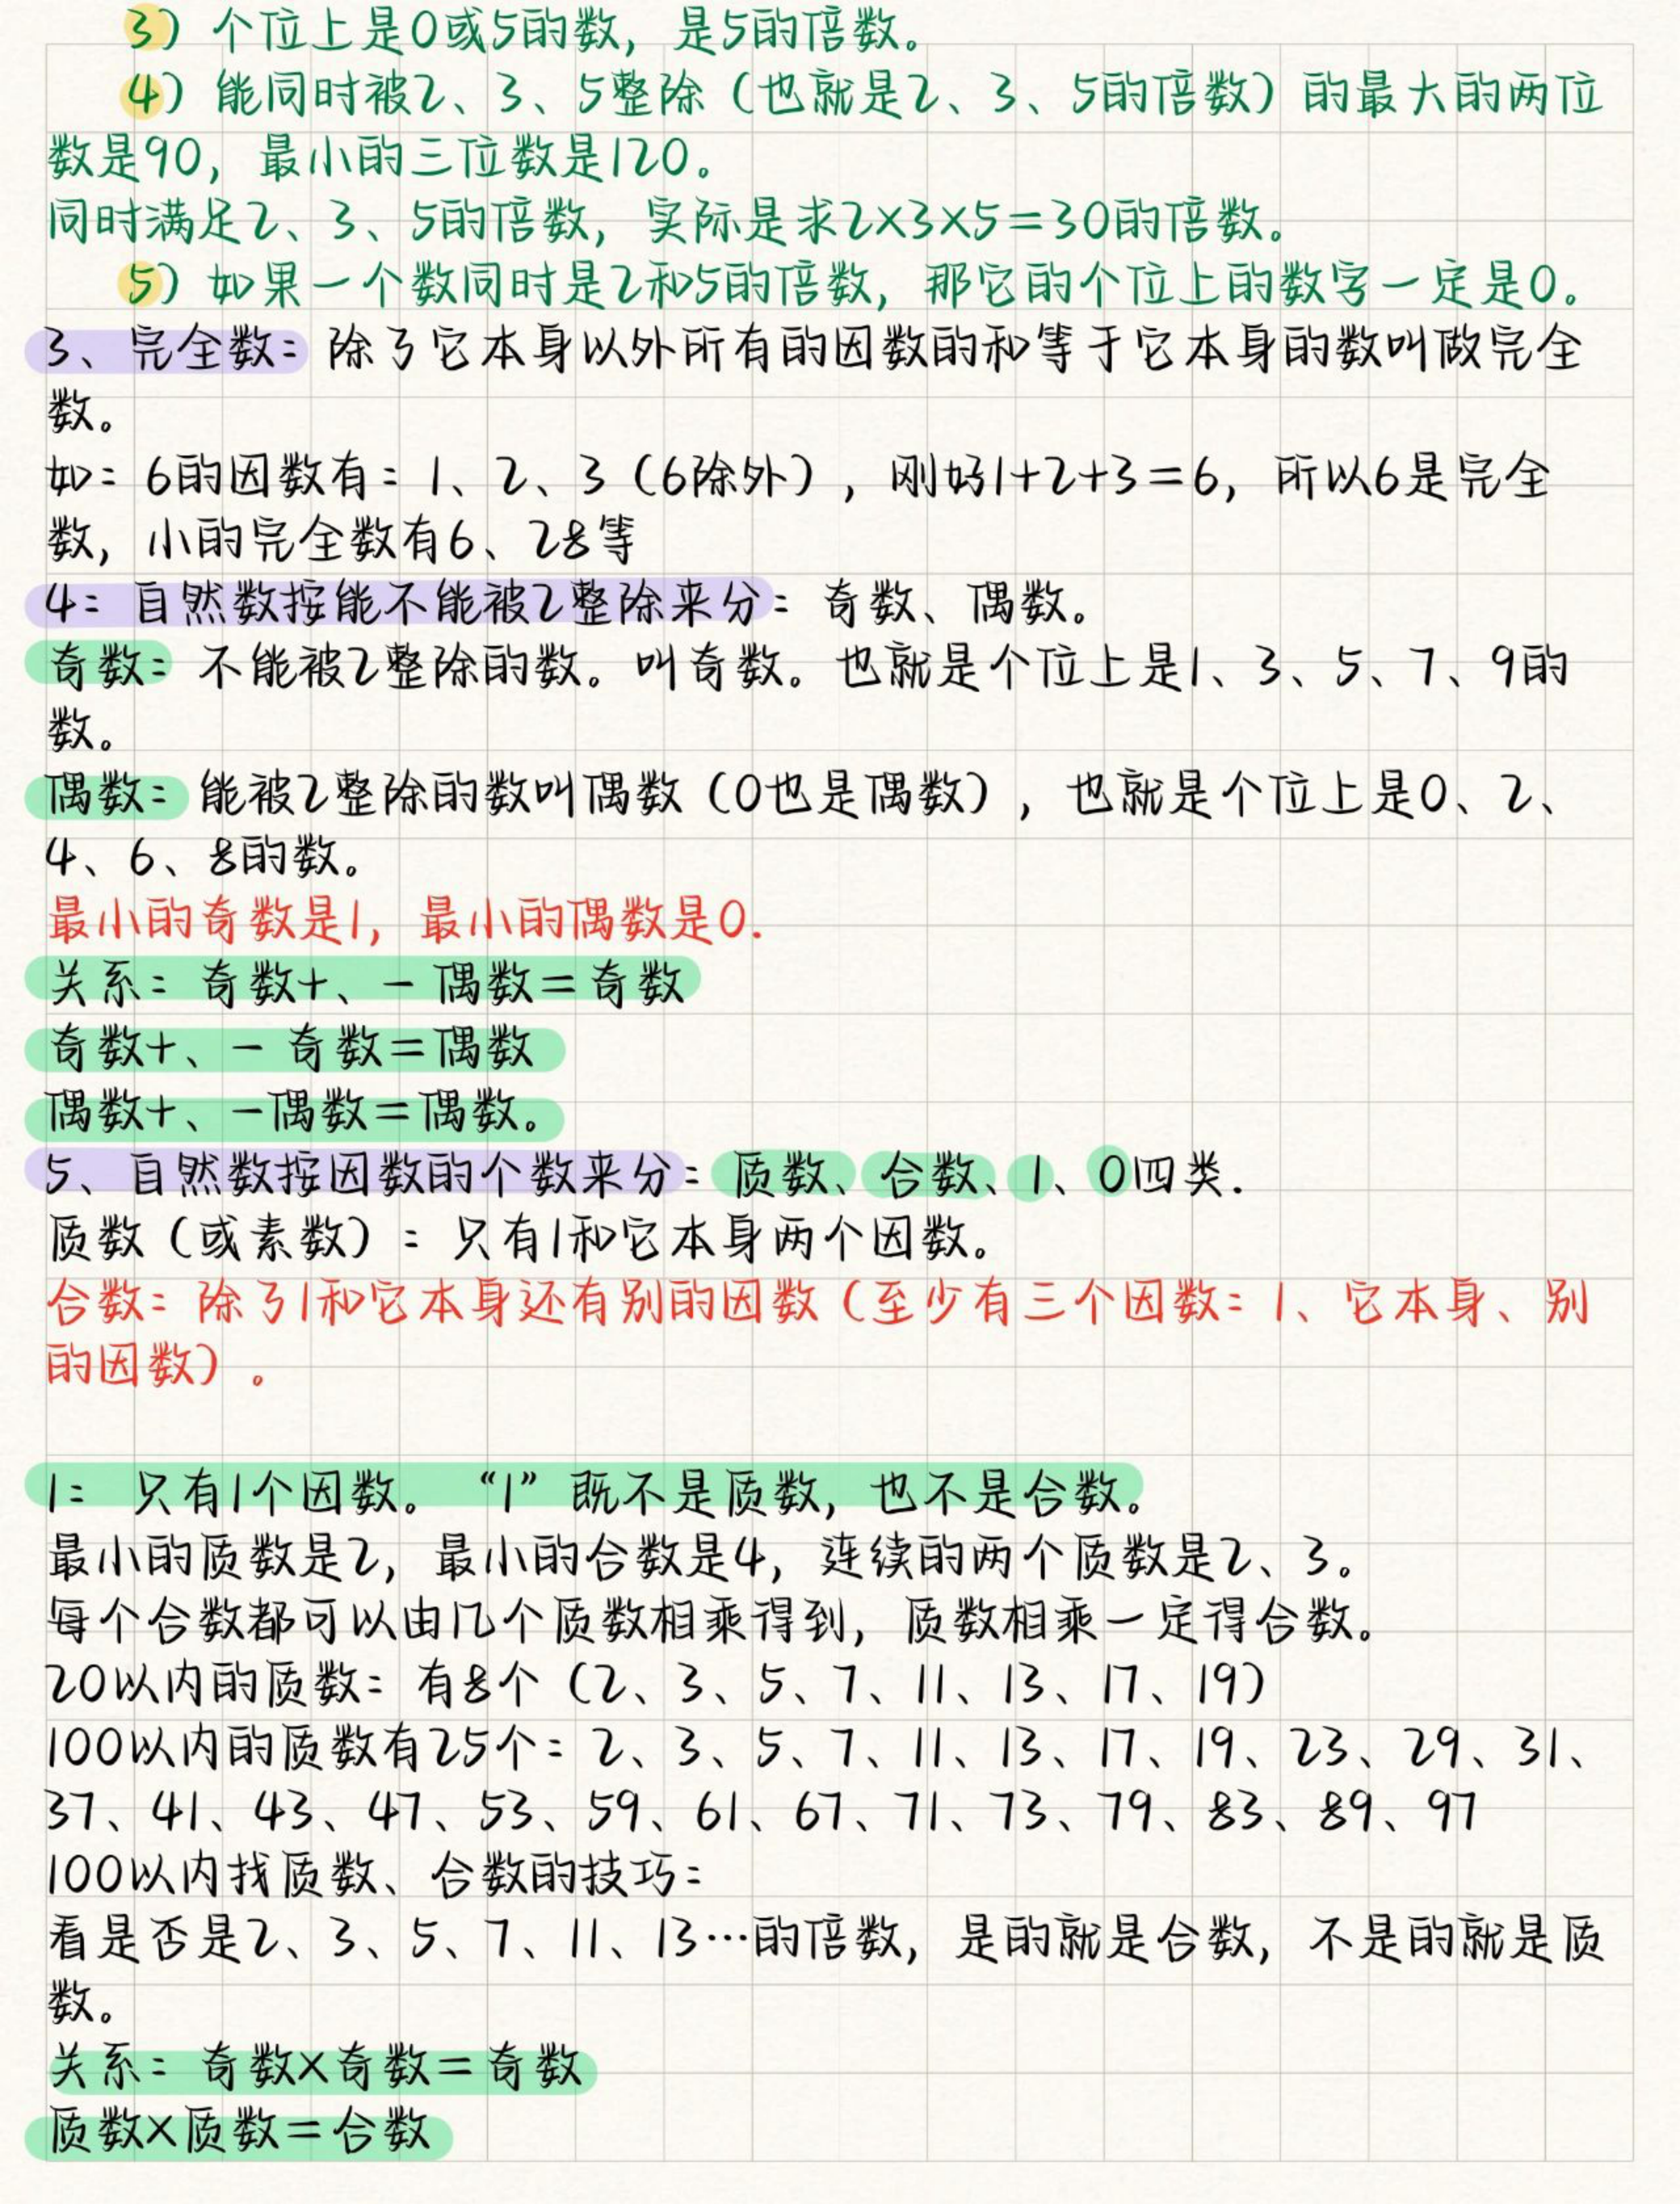 3）个位上是0或5的数，是5的倍数。
4）能同时被2、3、5整除（也就是2、3、5的倍数）的最大的两位
数是90，最小的三位数是120。
同时满足2、3、5的倍数，实际是求2×3×5=30的倍数。
5）如果一个数同时是2和5的倍数，那它的个位上的数字一定是0。
3、完全数：除了它本身以外所有的因数的和等于它本身的数叫做完全
数。
如：6的因数有：1、2、3（6除外），刚好1+2+3=6，所以6是完全
数，小的完全数有6、28等
4：自然数按能不能被2整除来分：奇数、偶数。
奇数：不能被2整除的数。叫奇数。也就是个位上是1、3、5、7、9的
数。
偶数：能被2整除的数叫偶数（0也是偶数），也就是个位上是0、2、
4、6、8的数。
最小的奇数是1，最小的偶数是0.
关系：奇数+、－偶数=奇数
奇数+、－奇数=偶数
偶数+、－偶数=偶数。
5、自然数按因数的个数来分：质数、合数、1、0四类.
质数（或素数）：只有1和它本身两个因数。
合数：除了1和它本身还有别的因数（至少有三个因数：1、它本身、别
的因数）。
1：只有1个因数。“1”既不是质数，也不是合数。
最小的质数是2，最小的合数是4，连续的两个质数是2、3。
每个合数都可以由几个质数相乘得到，质数相乘一定得合数。
20以内的质数：有8个（2、3、5、7、11、13、17、19）
100以内的质数有25个：2、3、5、7、11、13、17、19、23、29、31、
37、41、43、47、53、59、61、67、71、73、79、83、89、97
100以内找质数、合数的技巧：
看是否是2、3、5、7、11、13…的倍数，是的就是合数，不是的就是质
数。
关系：奇数×奇数=奇数
质数×质数=合数